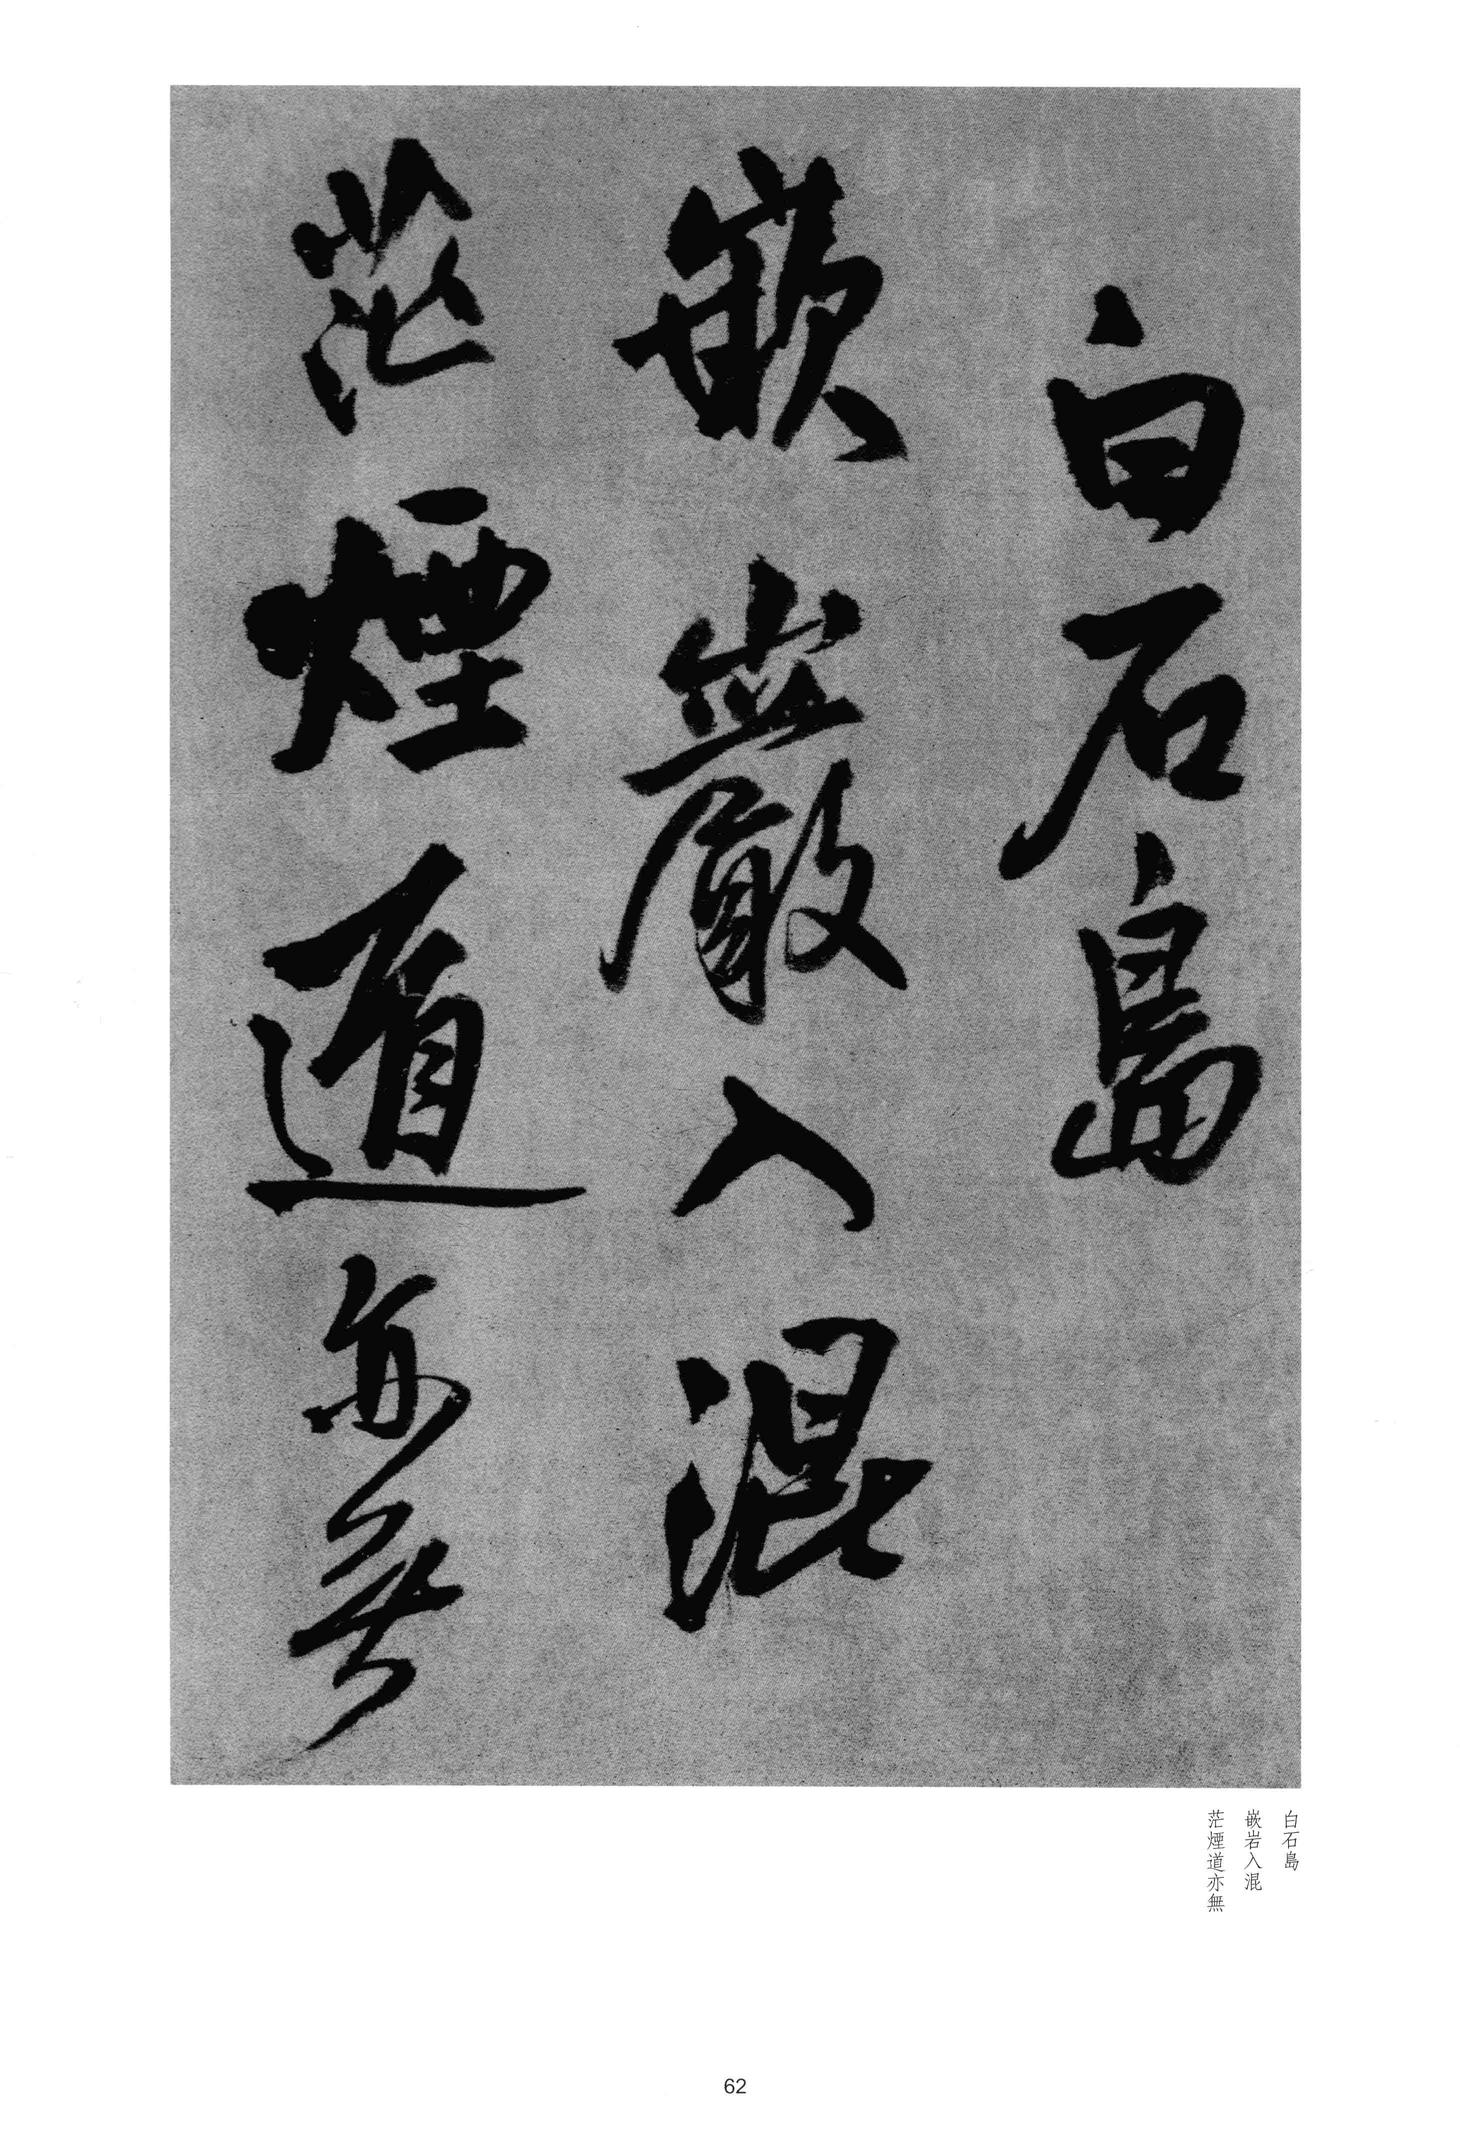 白石島
嵌巖入混
茫煙道亦無
白石島
嵌岩入混
茫煙道亦無
62